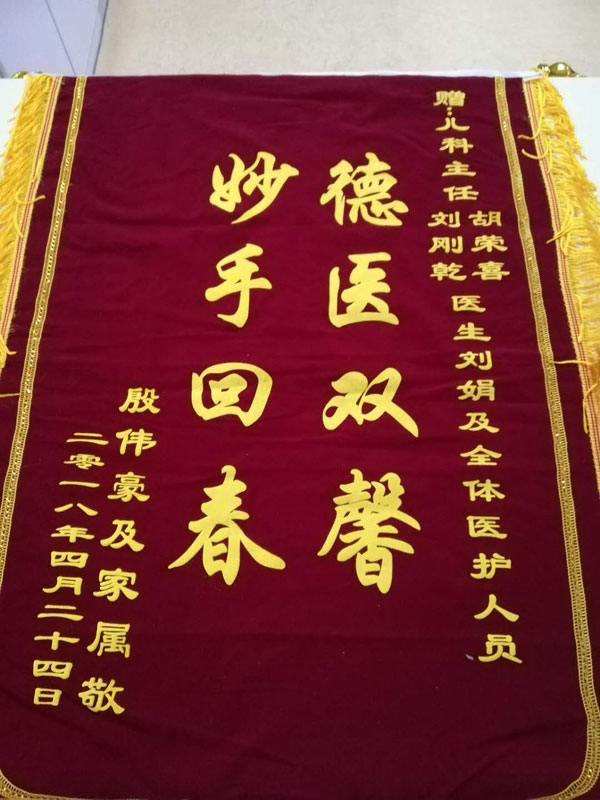 赠:儿科主任胡荣喜刘刚乾医生刘娟及全体医护人员
德医双馨
妙手回春
殷伟豪及家属敬
二零一八年四月二十四日